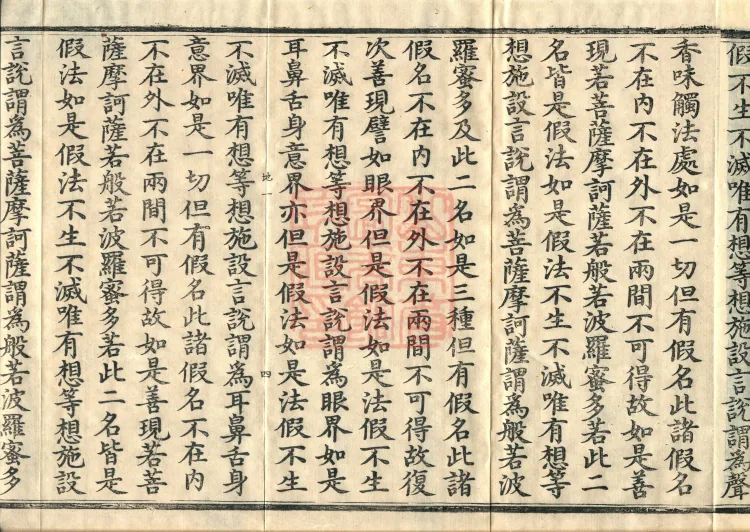 假不生不滅唯有想等想施設言說謂為聲
香味觸法處如是一切但有假名此諸假名
不在內不在外不在兩間不可得故如是善
現若菩薩摩訶薩若般若波羅蜜多若此二
名皆是假法如是假法不生不滅唯有想等
想施設言說謂為菩薩摩訶薩謂為般若波
羅蜜多及此二名如是三種但有假名此諸
假名不在內不在外不在兩間不可得故復
次善現譬如眼界但是假法如是法假不生
不滅唯有想等想施設言說謂為眼界如是
耳鼻舌身意界亦但是假法如是法假不生
地一
四
不滅唯有想等想施設言說謂為耳鼻舌身
意界如是一切但有假名此諸假名不在內
不在外不在兩間不可得故如是善現若菩
薩摩訶薩若般若波羅蜜多若此二名皆是
假法如是假法不生不滅唯有想等想施設
言說謂為菩薩摩訶薩謂為般若波羅蜜多